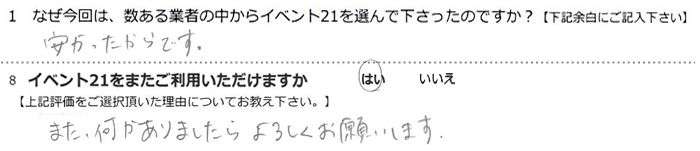 1 なぜ今回は、数ある業者の中からイベント21を選んで下さったのですか？【下記余白にご記入下さい】
安かったからです。
8 イベント21をまたご利用いただけますか はい いいえ
【上記評価をご選択頂いた理由についてお教え下さい。】
また、何かありましたらよろしくお願いします.